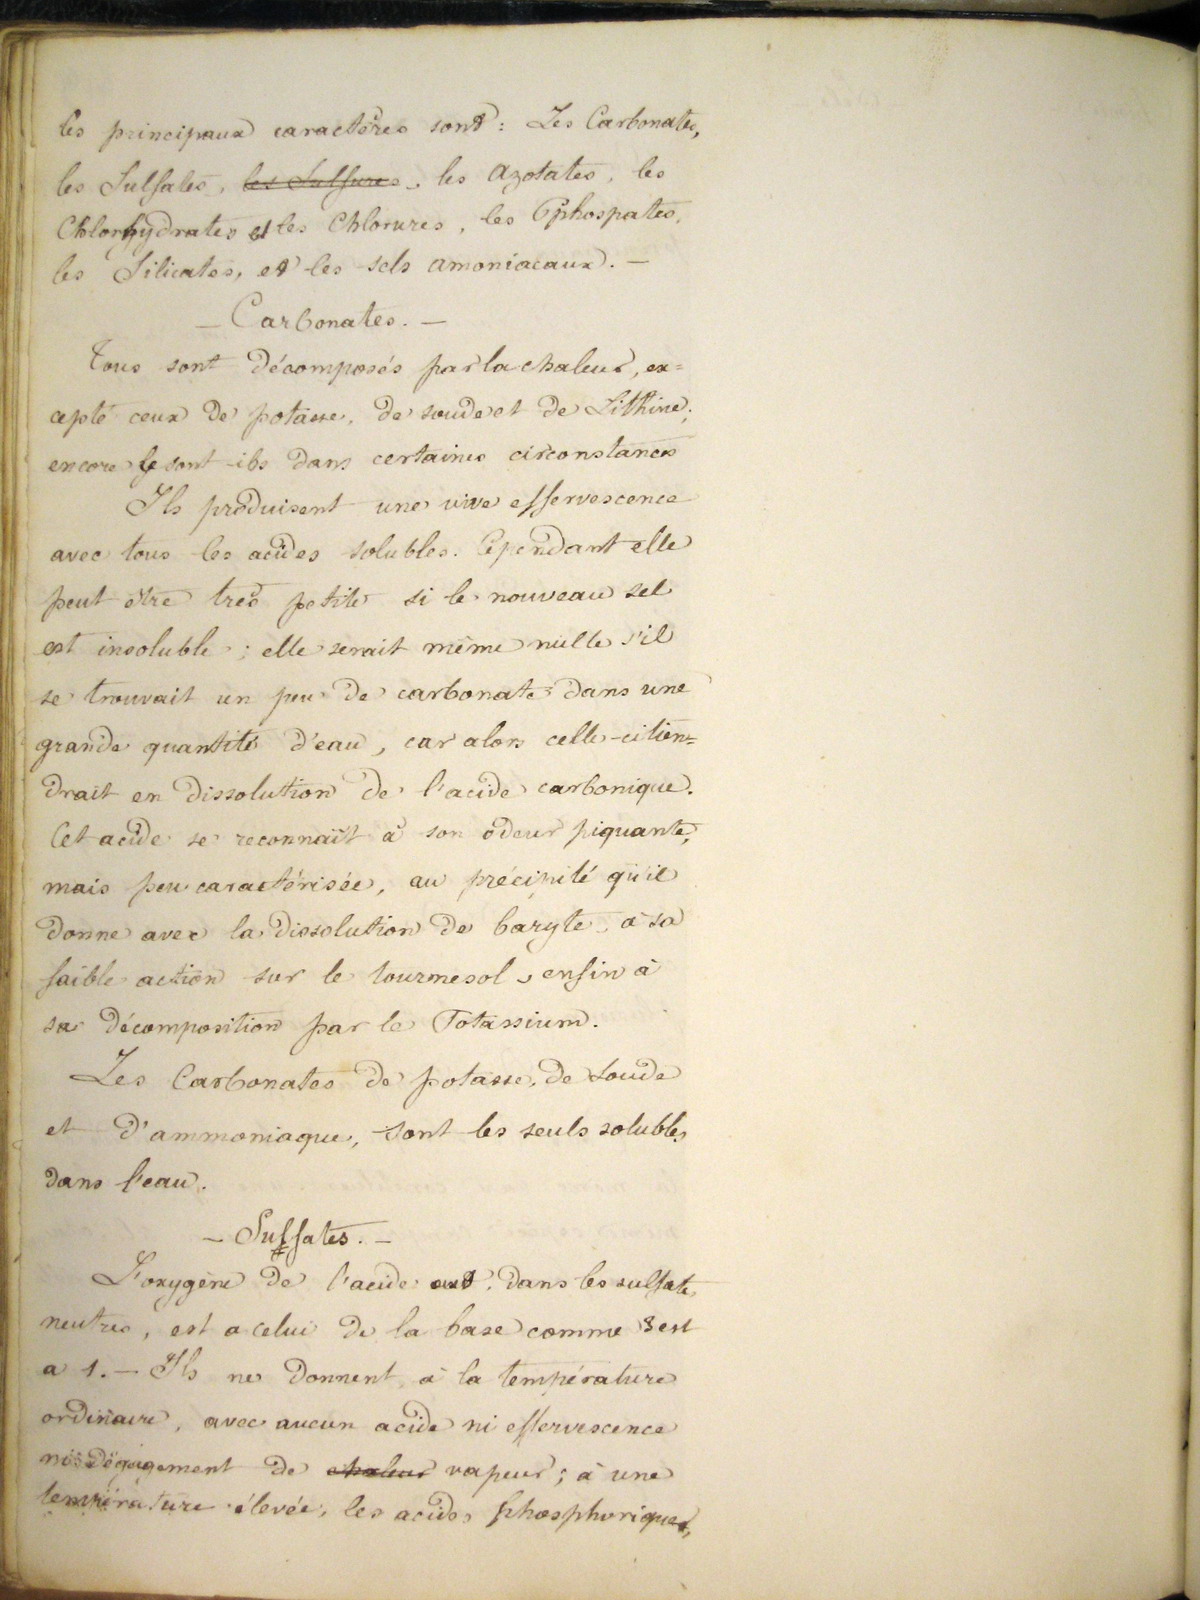 les principaux caractères sont : Les Carbonates,
les Sulfates, les Sulfures, les azotates, les
Chlorhydrates et les Chlorures, les Phospates,
les Silicates, et les sels amoniacaux. —
— Carbonates. —
Tous sont décomposés par la chaleur, ex=
cepté ceux de potasse, de soude et de Lithine;
encore le sont-ils dans certaines circonstances
Ils produisent une vive effervescence
avec tous les acides solubles. Cependant elle
peut être très petite si le nouveau sel
est insoluble ; elle serait même nulle s'il
se trouvait un peu de carbonate dans une
grande quantité d'eau, car alors celle-ci tien=
drait en dissolution de l'acide carbonique.
Cet acide se reconnaît à son odeur piquante,
mais peu caractérisée, au précipité qu'il
donne avec la dissolution de baryte, à sa
faible action sur le tournesol, enfin à
sa décomposition par le Potassium.
Les Carbonates de potasse, de soude
et d'ammoniaque, sont les seuls solubles
dans l'eau.
— Sulfates. —
L'oxygène de l'acide dans les sulfates
neutres, est a celui de la base comme 3 est
a 1. — Ils ne donnent, à la température
ordinaire, avec aucun acide ni effervescence
ni dégagement de chaleur vapeur ; à une
température élevée, les acides phosphorique,